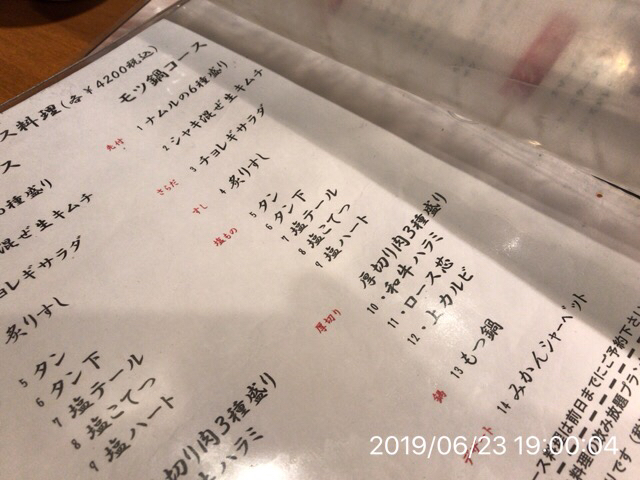 ス料理(各¥4200税込)
モツ鍋コース
先付
1 ナムルの6種盛り
2 シャキ混ぜ生キムチ
さらだ
3 チョレギサラダ
すし
4 炙りすし
塩もの
5 タン
6 タン下
7 塩テール
8 塩こてっ
9 塩ハート
厚切り
厚切り肉3種盛り
10・和牛ハラミ
11・ロース芯
12・上カルビ
鍋
13 もつ鍋
デザート
14 みかんシャーベット
ス
種盛り
混ぜ生キムチ
ョレギサラダ
炙りすし
5 タン
6 タン下
7 塩テール
8 塩こてっ
9 塩ハート
切り肉3種盛り
ハラミ
ース料
は前日までにご予約下さい
料理
飲み放題プラ
りです
2019/06/23 19:00:04